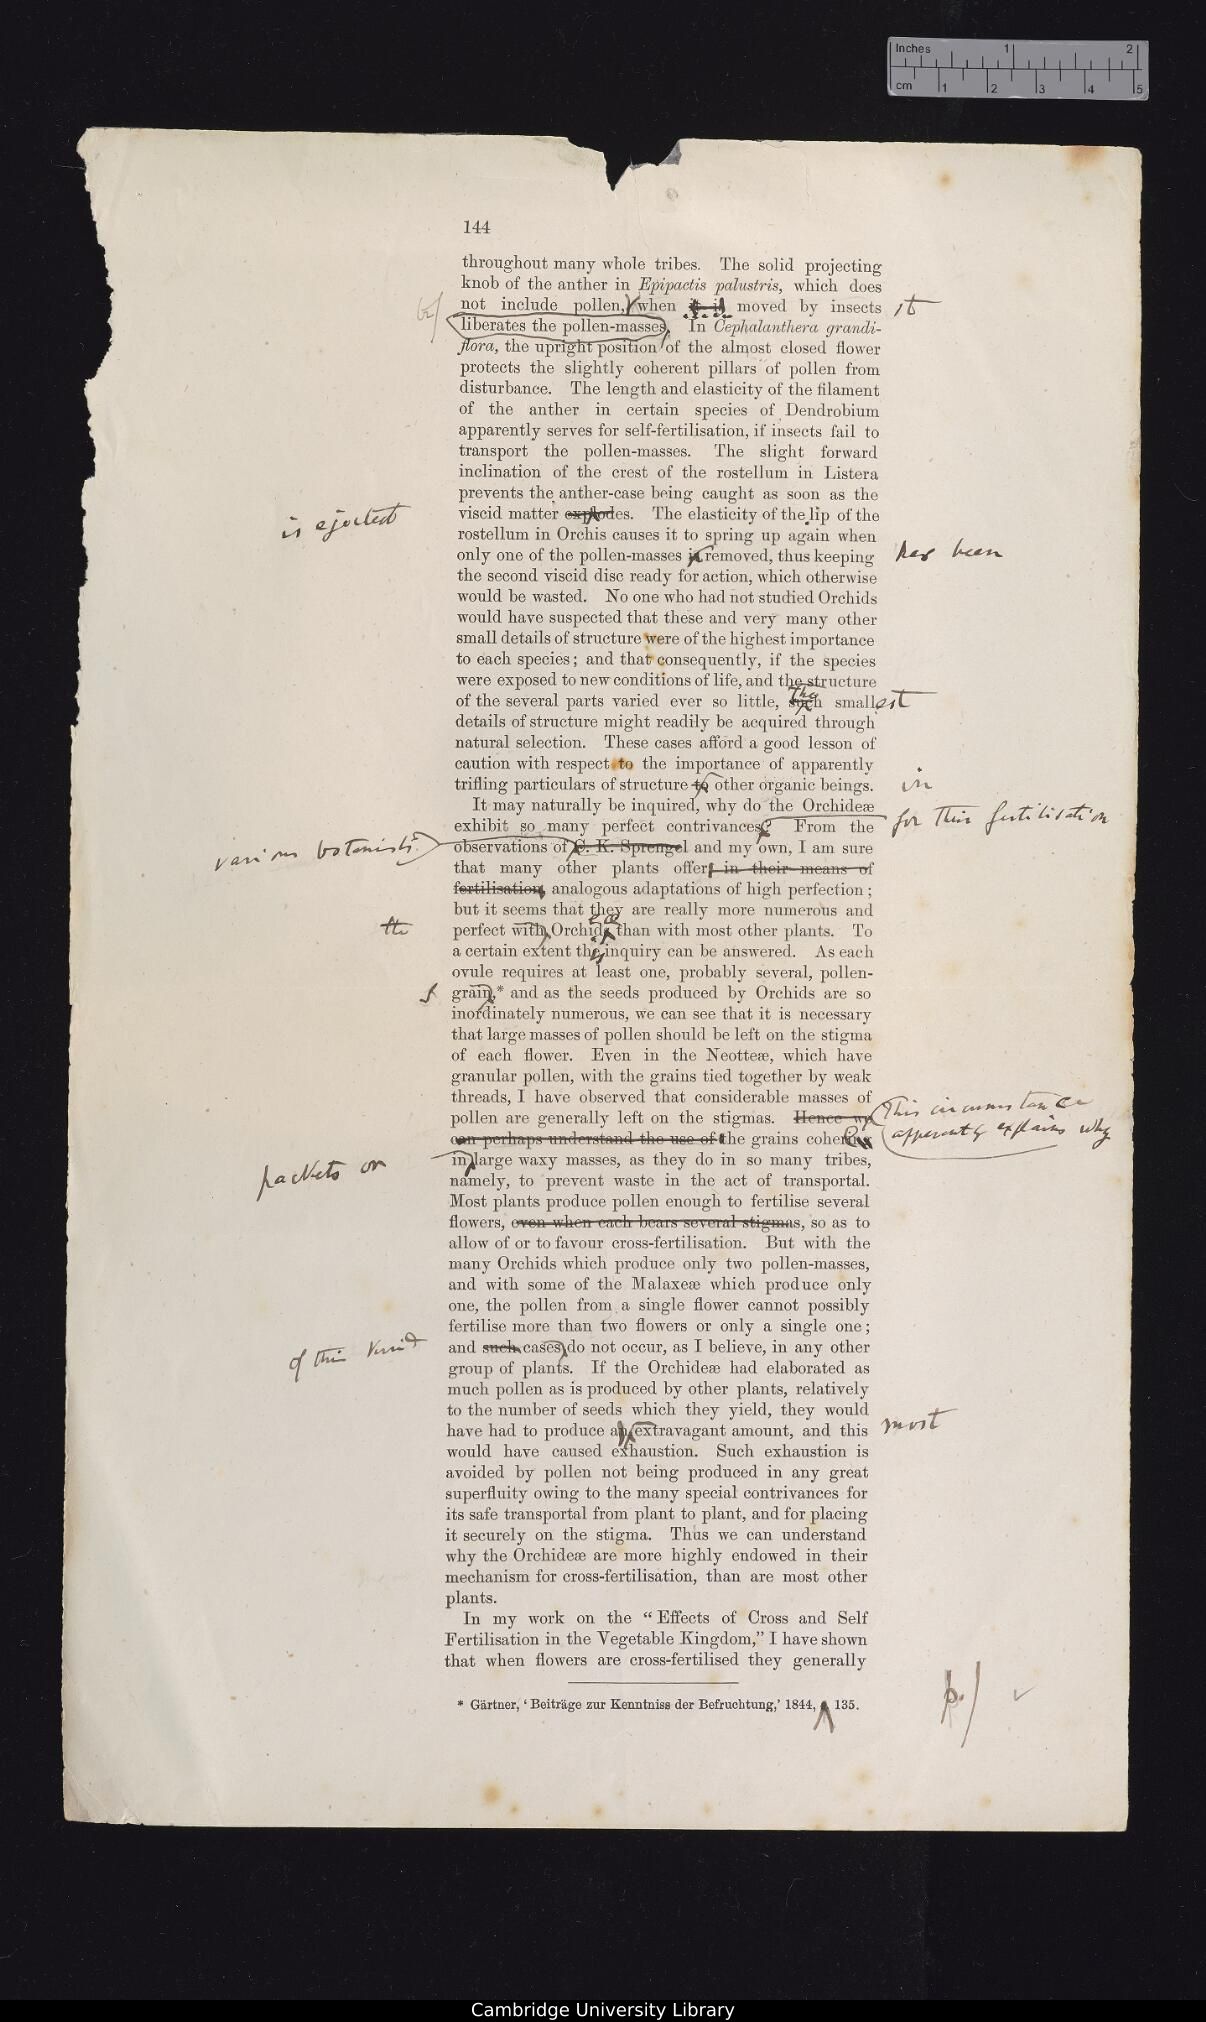 Inches 1 2
cm 1 2 3 4 5
144
throughout many whole tribes. The solid projecting
knob of the anther in Epipactis palustris, which does
not include pollen, when it is moved by insects it
liberates the pollen-masses. In Cephalanthera grandi-
flora, the upright position of the almost closed flower
protects the slightly coherent pillars of pollen from
disturbance. The length and elasticity of the filament
of the anther in certain species of Dendrobium
apparently serves for self-fertilisation, if insects fail to
transport the pollen-masses. The slight forward
inclination of the crest of the rostellum in Listera
prevents the anther-case being caught as soon as the
is ejected
viscid matter explodes. The elasticity of the lip of the
rostellum in Orchis causes it to spring up again when
only one of the pollen-masses is removed, thus keeping has been
the second viscid disc ready for action, which otherwise
would be wasted. No one who had not studied Orchids
would have suspected that these and very many other
small details of structure were of the highest importance
to each species; and that consequently, if the species
were exposed to new conditions of life, and the structure
the
of the several parts varied ever so little, such small est
details of structure might readily be acquired through
natural selection. These cases afford a good lesson of
caution with respect to the importance of apparently
trifling particulars of structure to other organic beings. in
It may naturally be inquired, why do the Orchideæ
exhibit so many perfect contrivances? From the for their fertilisation
various botanists
observations of C. K. Sprengel and my own, I am sure
that many other plants offer, in their means of
fertilisation, analogous adaptations of high perfection;
but it seems that they are really more numerous and
the
eæ
perfect with Orchids than with most other plants. To
a certain extent the inquiry can be answered. As each
is
ovule requires at least one, probably several, pollen-
s
grain,* and as the seeds produced by Orchids are so
inordinately numerous, we can see that it is necessary
that large masses of pollen should be left on the stigma
of each flower. Even in the Neotteæ, which have
granular pollen, with the grains tied together by weak
threads, I have observed that considerable masses of
pollen are generally left on the stigmas. Hence we This circumstance
can perhaps understand the use of the grains cohering apparently explains why
packets or
in large waxy masses, as they do in so many tribes,
namely, to prevent waste in the act of transportal.
Most plants produce pollen enough to fertilise several
flowers, even when each bears several stigmas, so as to
allow of or to favour cross-fertilisation. But with the
many Orchids which produce only two pollen-masses,
and with some of the Malaxeæ which produce only
one, the pollen from a single flower cannot possibly
fertilise more than two flowers or only a single one;
of this kind
and such cases do not occur, as I believe, in any other
group of plants. If the Orchideæ had elaborated as
much pollen as is produced by other plants, relatively
to the number of seeds which they yield, they would
have had to produce an extravagant amount, and this most
would have caused exhaustion. Such exhaustion is
avoided by pollen not being produced in any great
superfluity owing to the many special contrivances for
its safe transportal from plant to plant, and for placing
it securely on the stigma. Thus we can understand
why the Orchideæ are more highly endowed in their
mechanism for cross-fertilisation, than are most other
plants.
In my work on the “Effects of Cross and Self
Fertilisation in the Vegetable Kingdom,” I have shown
that when flowers are cross-fertilised they generally
* Gärtner, ‘Beiträge zur Kenntniss der Befruchtung,’ 1844, 135.
p.
Cambridge University Library